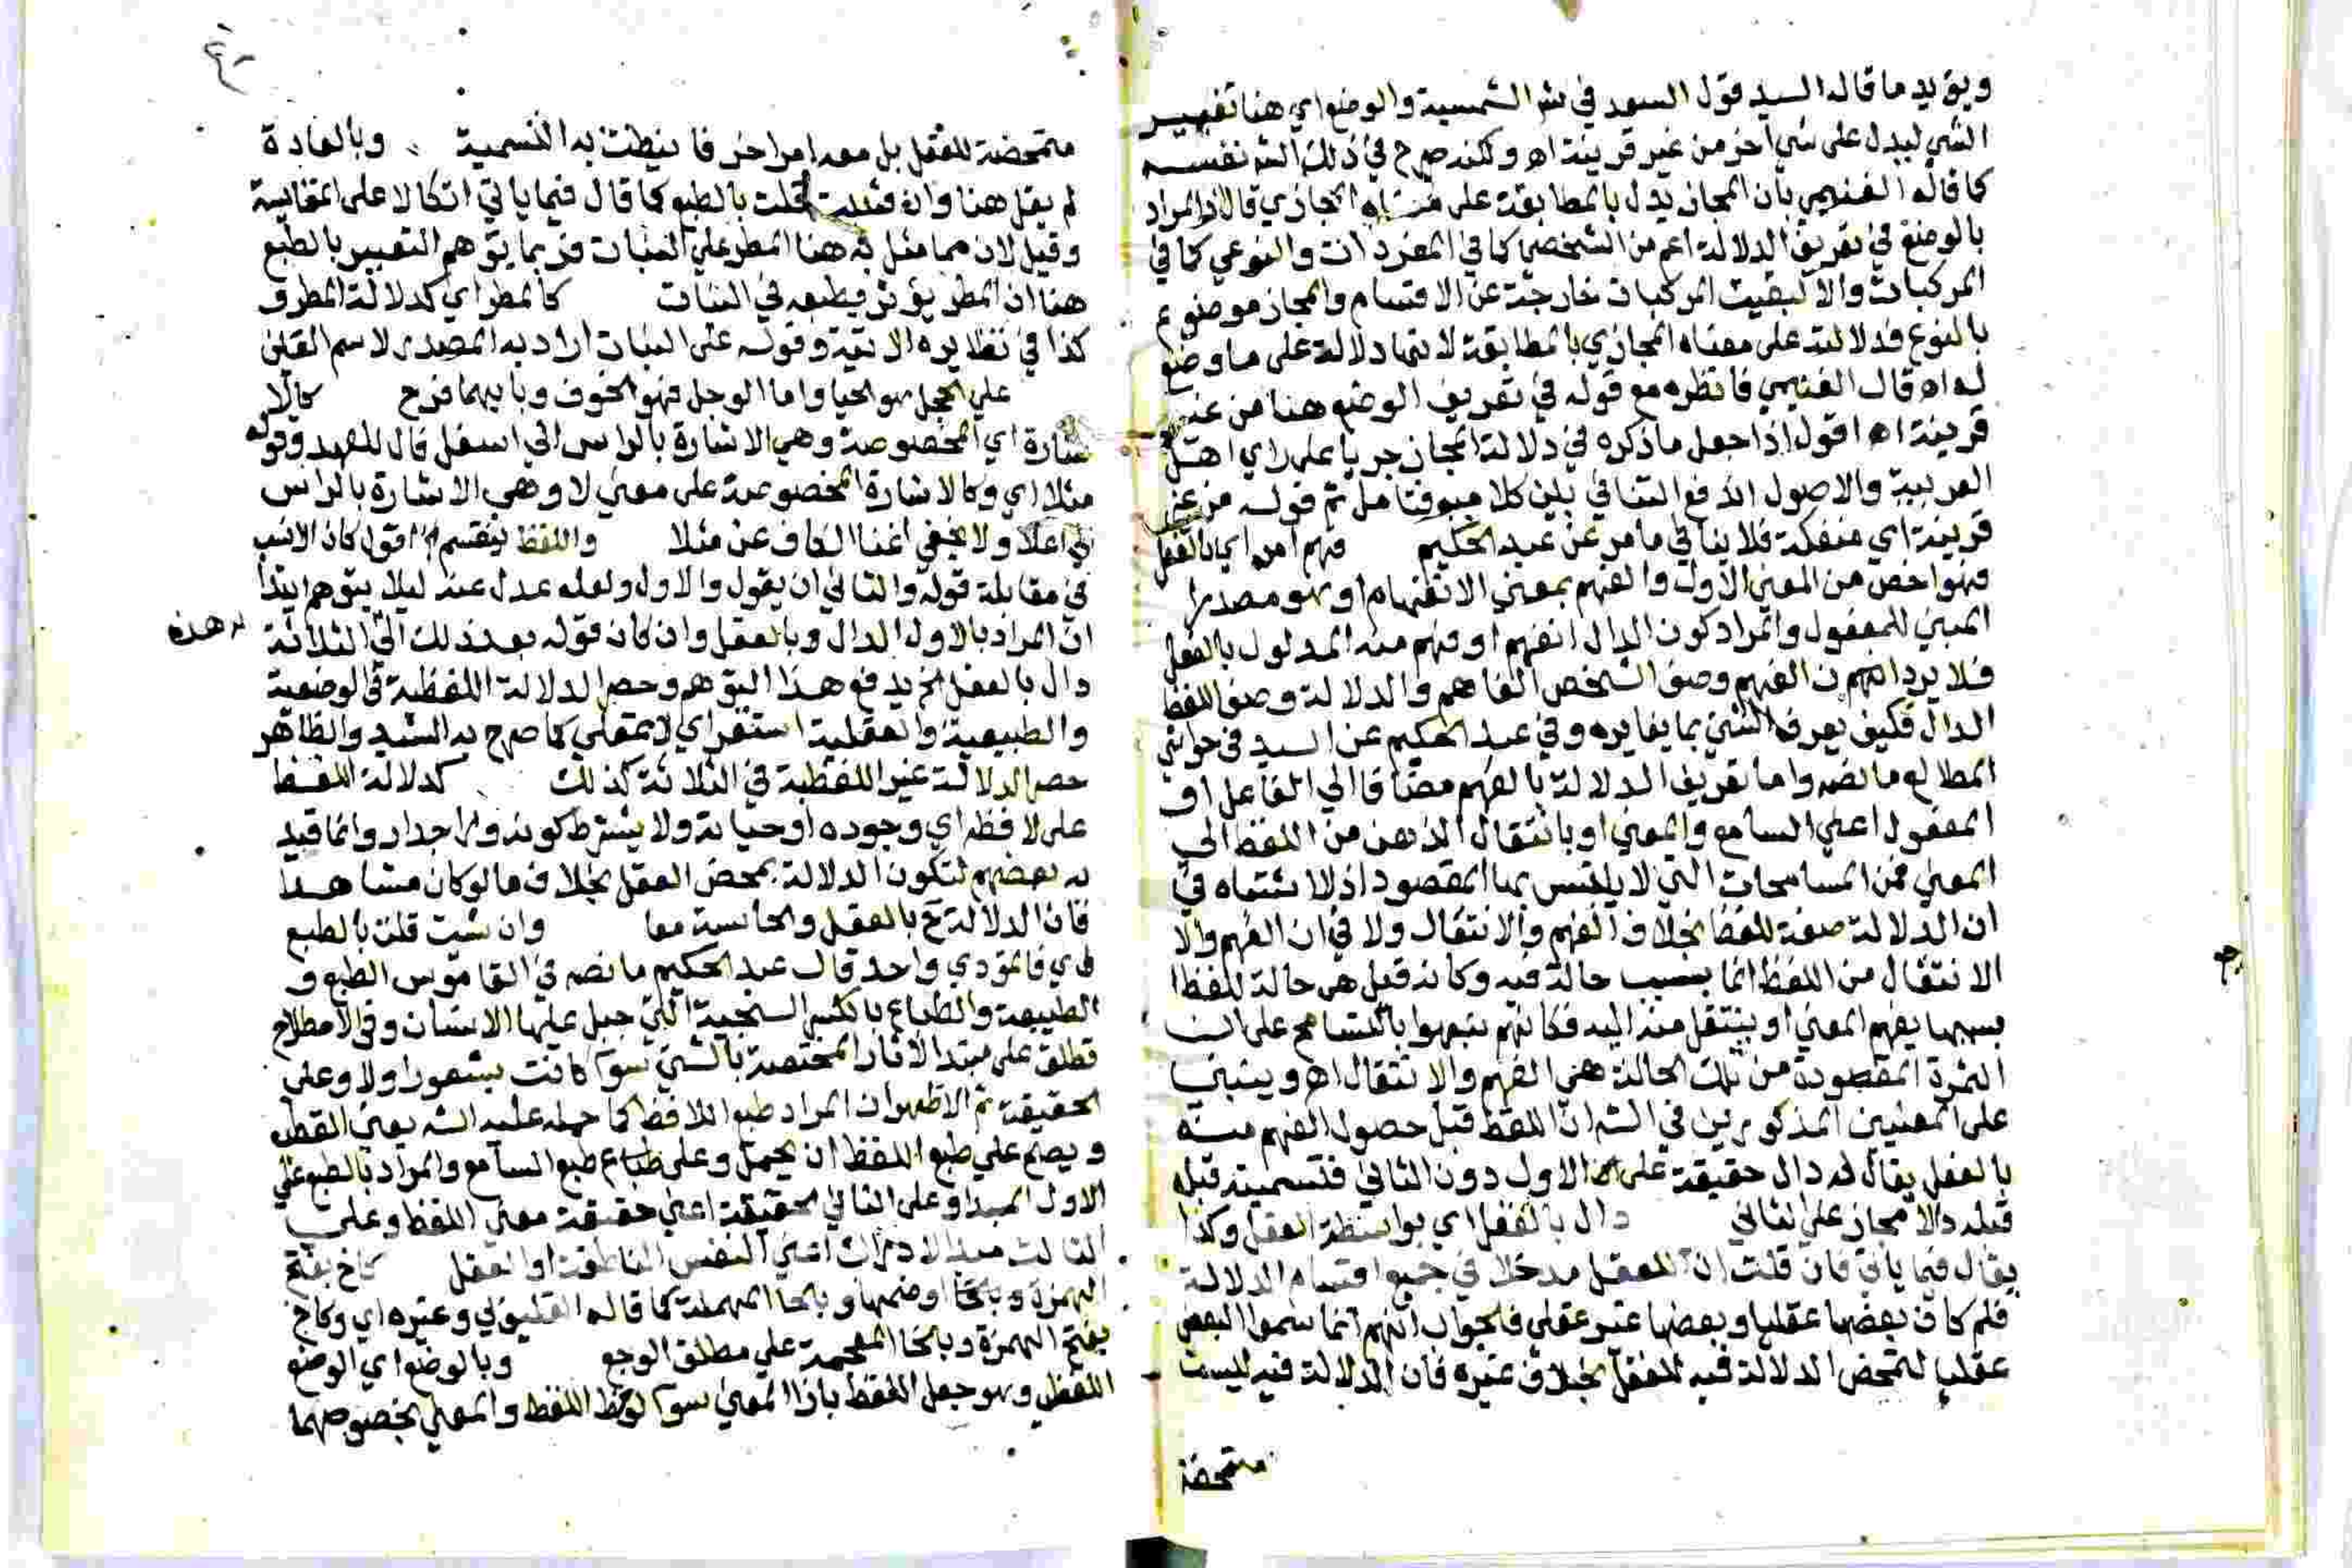 ويؤيد ما قاله السيد قول السعد في شر الشمسية والوضع اي هنا تعيير
الشي ليدل على شي اخر من غير قرينة اه ولكنه صرح في ذلك الشه نفسه
كما قاله الغنيمي بان المجاز يدل بالمطابقة على المجازي قال والمراد
بالوضع في تعريف الدلالة اعم من الشخصي كما في المفردات والنوعي كما في
المركبات والا لبقيت المركبات خارجة عن الاقسام والمجاز موضوع
بالنوع فدلالته على معناه المجازي بالمطابقة لانها دلالة على ما وضع
له اه قال الغنيمي فانظره مع قوله في تعريف الوضع هنا من غير
قرينة اه اقول اذا جعل ما ذكره في دلالة المجاز جريا على راي اهل
العربية والاصول اندفع التنافي بين كلاميه فتامل ثم قوله من غير
قرينة اي منفكة فلا ينافي ما مر عن عبد الحكيم فهم امر اي بالفعل
فهو اخص من المعنى الاول والفهم بمعنى الانفهام او هو مصدر
المبني للمفعول والمراد كون الدال انفهم او فهم منه المدلول بالفعل
فلا يرد ان الفهم وصف الشخص الفاهم والدلالة وصف اللفظ
الدال فكيف يعرف الشي بما يغايره وفي عبد الحكيم عن السيد في حواشي
المطالع ما نصه واما تعريف الدلالة بالفهم مضافا الى الفاعل او
المفعول اعني السامع والمعنى او بانتقال الذهن من اللفظ الى
المعنى فمن المسامحات التي لا يلتبس بها المقصود اذ لا اشتباه في
ان الدلالة صفة للفظ بخلاف الفهم والانتقال ولا في ان الفهم والا
الانتقال من اللفظ انما بسبب حالة فيه وكانه قيل هي حالة للفظ
بسببها يفهم المعنى او ينتقل منه اليه فكانهم نبهوا بالتسامح على ان
الثمرة المقصودة من تلك الحالة هي الفهم والانتقال اه وينبني
على المعنيين المذكورين في الشه ان اللفظ قبل حصول الفهم منه
بالفعل يقال له دال حقيقة على الاول دون الثاني فتسميته قبله
قبله دالا مجاز على الثاني دال بالعقل اي بواسطة العقل وكذا
يقال فيما ياتي فان قلت ان للعقل مدخلا في جميع اقسام الدلالة
فلم كان بعضها عقليا وبعضها غير عقلي فالجواب انهم انما سموا البعض
عقليا لتمحض الدلالة فيه للعقل بخلاف غيره فان الدلالة فيه ليست
متمحضة
متمحضة للعقل بل معه امر اخر فانيطت به التسمية وبالعادة
لم يقل هنا وان شئت قلت بالطبع كما قال فيما ياتي اتكالا على المقايسة
وقيل لان مما مثل به هنا المطر على النبات فربما يتوهم التعبير بالطبع
هنا ان المطر يؤثر بطبعه في النبات كالمطر اي كدلالة المطر و
كذا في نظايره الاتية وقوله على النبات اراد به المصدر لا اسم العين
على الخجل هو الحيا واما الوجل فهو الخوف وبابهما فرح كالا
شارة اي المخصوصة وهي الاشارة بالراس الى اسفل فال للعهد وقوله
مثلا اي وكالاشارة المخصوصة على معنى لا وهي الاشارة بالراس
الى اعلا ولا يخفى اغنا الكاف عن مثلا واللفظ ينقسم الخ اقول كان الانسب
في مقابلة قوله والثاني ان يقول والاول ولعله عدل عنه ليلا يتوهم ابتدا
ان المراد بالاول الدال وبالعقل وان كان قوله بعد ذلك الى الثلاثة
هذه
دال بالعقل الخ يدفع هذا التوهم وحصر الدلالة اللفظية في الوضعية
والطبيعية والعقلية استقراي لا عقلي كما صرح به السيد والظاهر
حصر الدلالة غير اللفظية في الثلاثة كذلك كدلالة اللفظ
على لافظه اي وجوده او حياته ولا يشترط كونه ورا جدار وانما قيد
به بعضهم لتكون الدلالة بمحض العقل بخلاف ما لو كان مشاهدا
فان الدلالة ح بالعقل والحاسة معا وان شيت قلت بالطبع
اي فالمؤدي واحد قال عبد الحكيم ما نصه في القاموس الطبع و
الطبيعة والطباع بالكسر السجية التي جبل عليها الانسان وفي الاصطلاح
تطلق على مبتدا الاثار المختصة بالشي سوا كانت بشعور او لا وعلى
الحقيقة ثم الاظهر ان المراد طبع اللافظ كما حمله عليه الشه يعني القطب
ويصح على طبع اللفظ ان يحمل وعلى طبع السامع والمراد بالطبع على
الاول المبدا وعلى الثاني الحقيقة اعني حقيقة معنى اللفظ وعلى
الثالث مبدا الادراك اعني النفس الناطقة او العقل كاخ بفتح
الهمزة وبالخا او ضمها وبالحا المهملة كما قاله القليوبي وغيره اي وكاخ
بفتح الهمزة وبالخا المعجمة على مطلق الوجع وبالوضع اي الوضع
اللفظي وهو جعل اللفظ بازا المعنى سوا لوحظ اللفظ والمعنى بخصوصهما